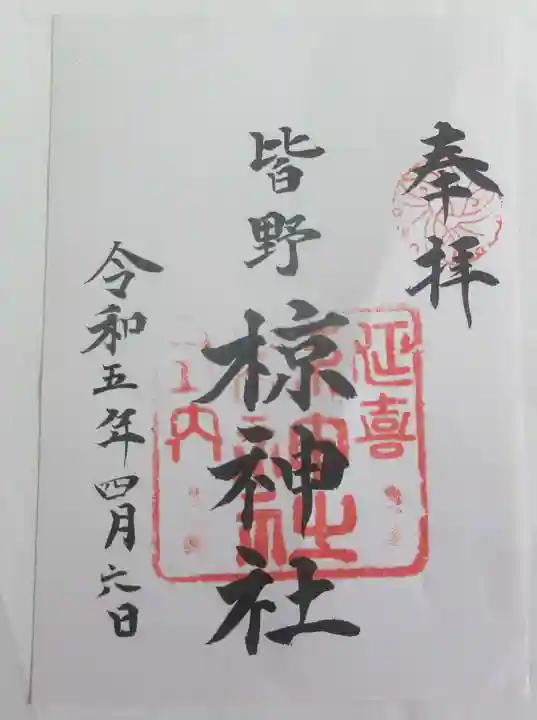 奉拝
皆野
椋神社
令和五年四月六日
延喜
内